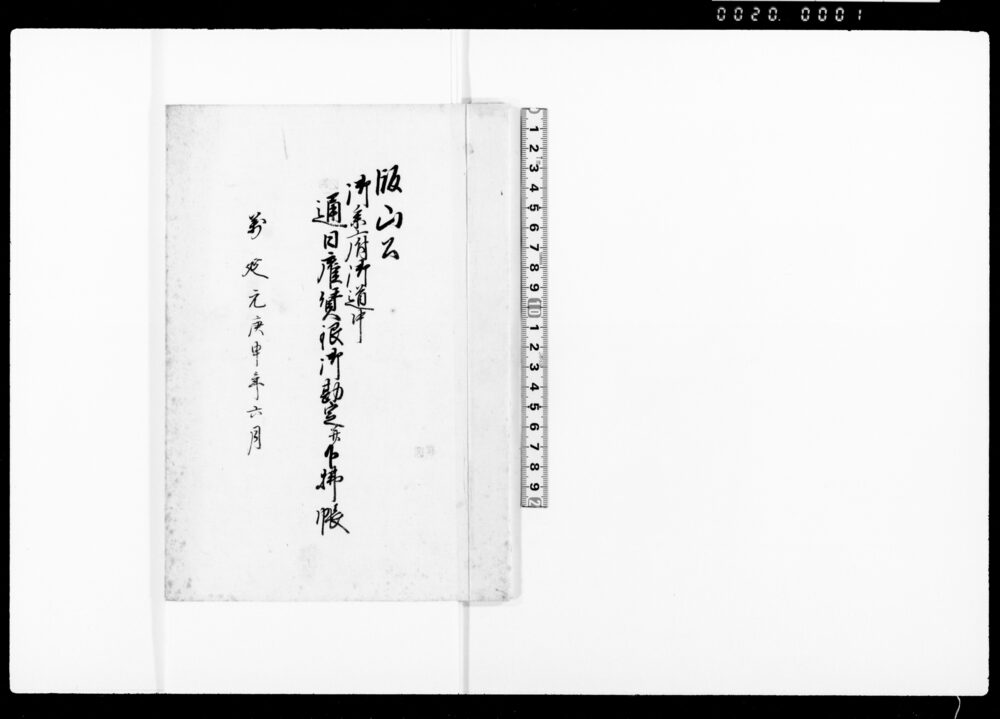 0020. 0001
版山公
御参府御道中
通日雇賃銀御勘定并下拂帳
萬延元庚申年六月
1 2 3 4 5 6 7 8 9 10 1 2 3 4 5 6 7 8 9 2